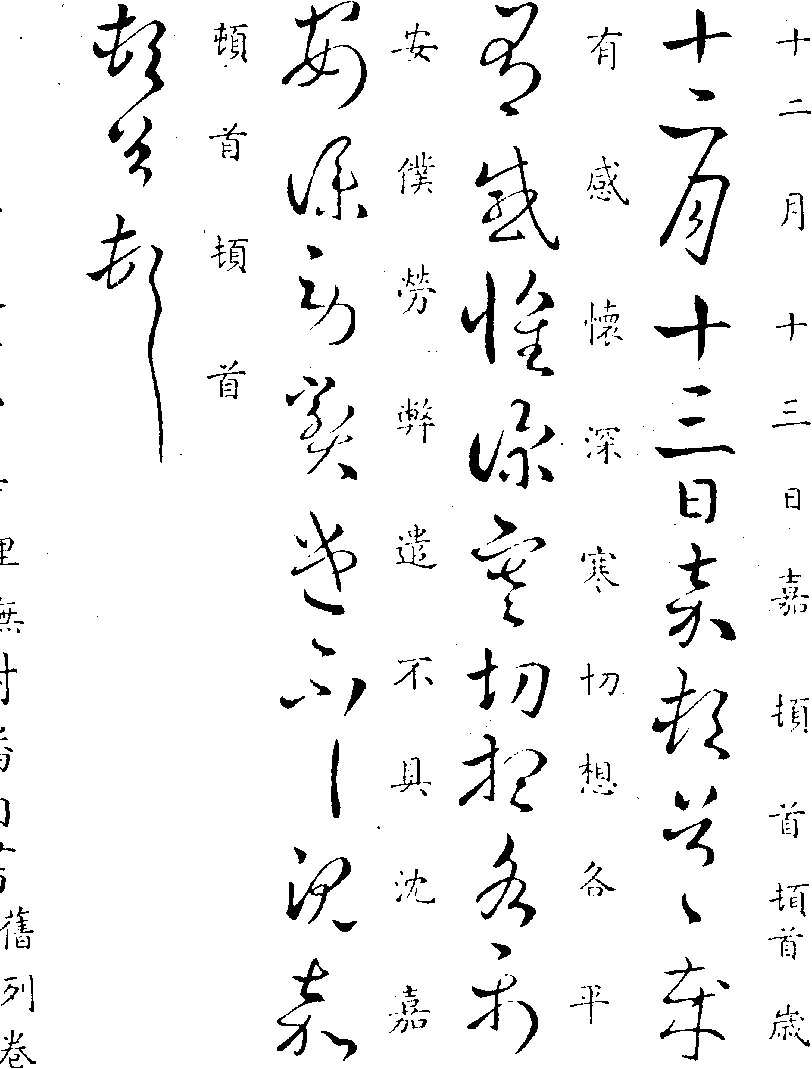 十二月十三日嘉頓首頓首歳
十二月十三日嘉頓首〻歳
有感懷深寒切想各平
有感懷深寒切想各平
安僕勞弊遣不具沈嘉
安僕勞弊遣不具沈嘉
頓首頓首
頓首頓首
舊列卷